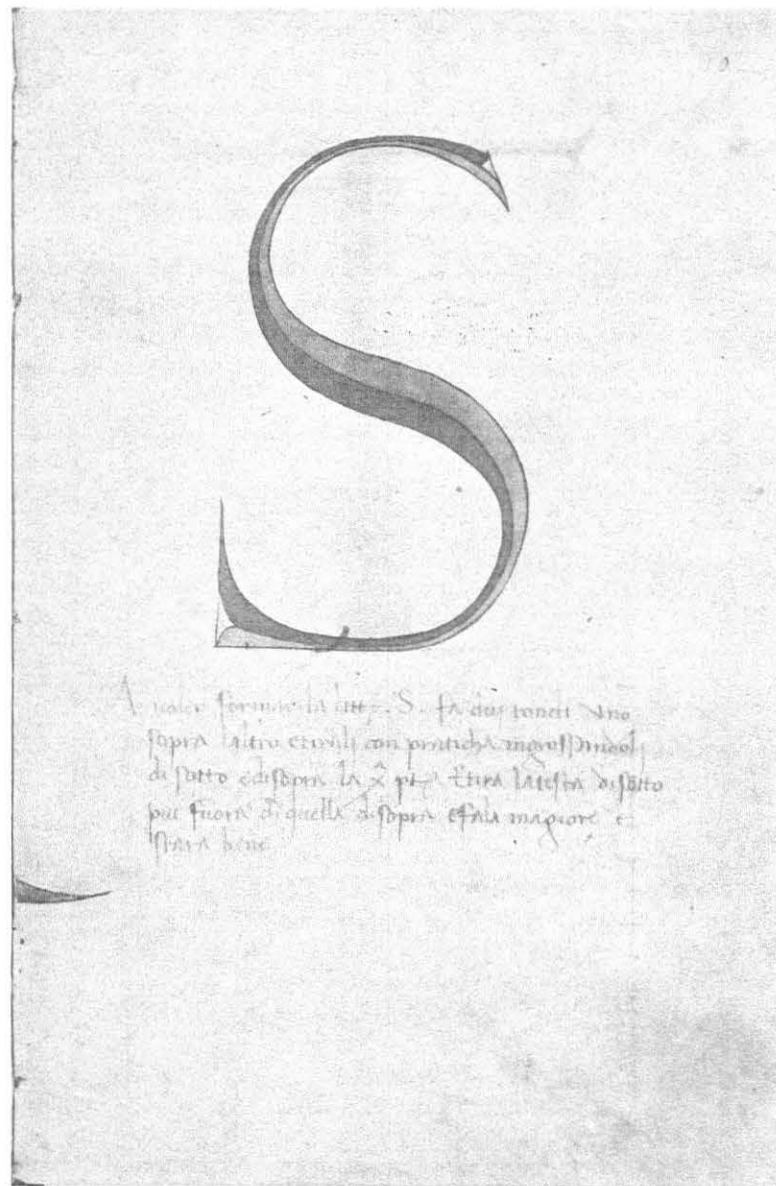 S
A voler formar la litt. S. fa dui tondi uno
sopra laltro e tirali con praticha ingrossandoli
di sotto e disopra la x pt. E tira la testa disotto
piu fuora di quella disopra e fala magiore e
stara bene